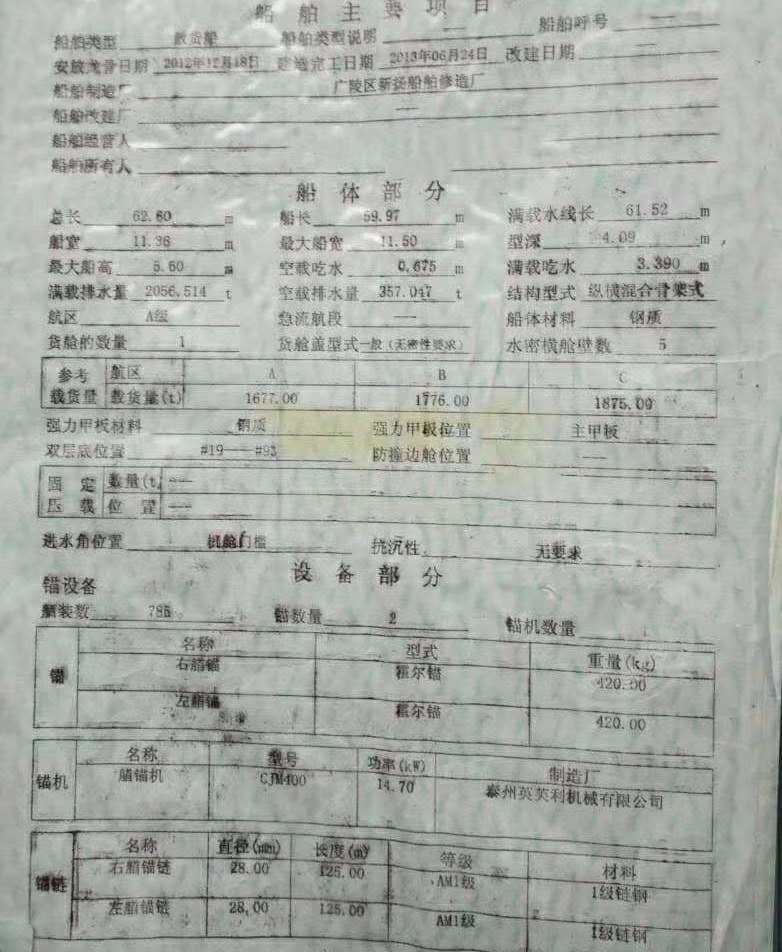 船舶主要项目
船舶类型 散货船 船舶类型说明 — 船舶呼号 —
安放龙骨日期 2012年12月18日 建造完工日期 2013年06月24日 改建日期 —
船舶制造厂 广陵区新扬船舶修造厂
船舶改建厂 —
船舶经营人
船舶所有人
船体部分
总长 62.60 m 船长 59.97 m 满载水线长 61.52 m
船宽 11.36 m 最大船宽 11.50 m 型深 4.09 m
最大船高 5.60 m 空载吃水 0.675 m 满载吃水 3.390 m
满载排水量 2056.514 t 空载排水量 357.047 t 结构型式 纵横混合骨架式
航区 A级 急流航段 — 船体材料 钢质
货舱的数量 1 货舱盖型式 一般(无密性要求) 水密横舱壁数 5
参考 航区 A B C
载货量 载货量(t) 1677.00 1776.00 1875.00
强力甲板材料 钢质 强力甲板位置 主甲板
双层底位置 #19——#93 防撞边舱位置 —
固定 数量(t) —
压载 位置 —
进水角位置 机舱门槛 抗沉性 无要求
设备部分
锚设备
舾装数 785 锚数量 2 锚机数量
锚 名称 型式 重量(kg)
右艏锚 霍尔锚 420.00
左艏锚 霍尔锚 420.00
锚机 名称 型号 功率(kW) 制造厂
艏锚机 CJM400 14.70 泰州英英利机械有限公司
锚链 名称 直径(mm) 长度(m) 等级 材料
右艏锚链 28.00 125.00 AM1级 1级链钢
左艏锚链 28.00 125.00 AM1级 1级链钢